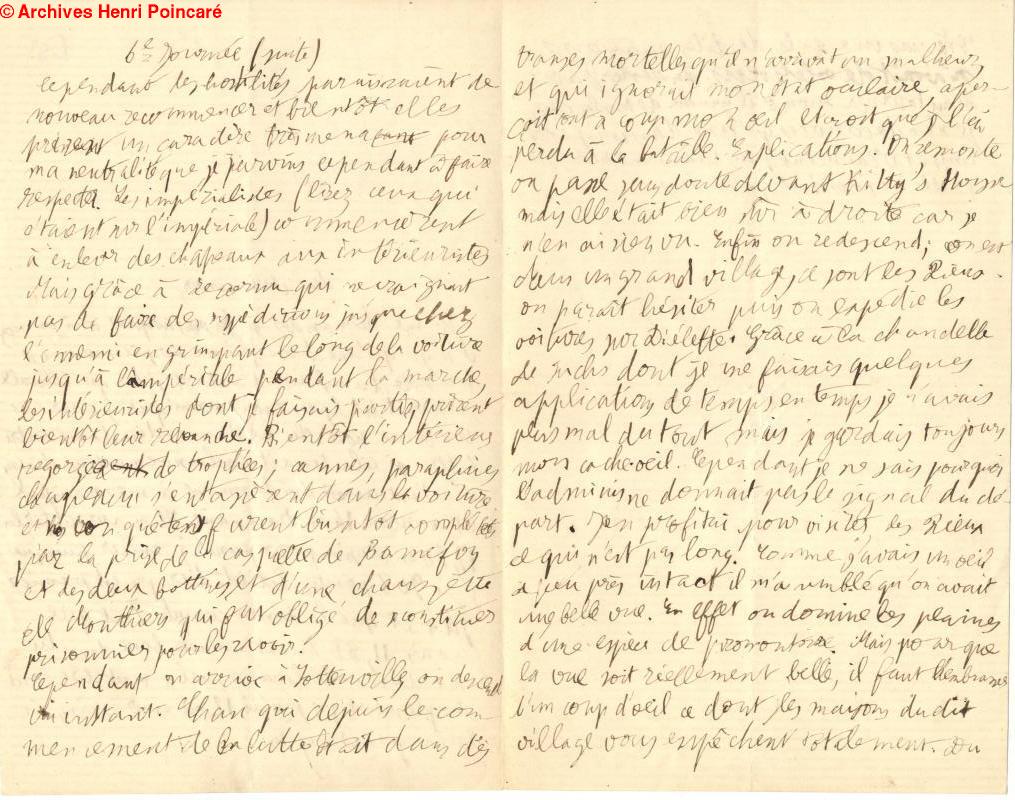 © Archives Henri Poincaré
6e Journée (suite)
Cependant les hostilités paraissaient de
nouveau recommencer et bientôt elles
prirent un caractère très menaçant pour
ma neutralité que je parvins cependant à faire
respecter. Les impérialistes (lisez ceux qui
étaient sur l'impériale) commencèrent
à enlever des chapeaux aux intérieuristes
Mais grâce à qui ne craignait
pas de faire des expéditions jusque chez
l'ennemi en grimpant le long de la voiture
jusqu'à l'impériale pendant la marche,
les intérieuristes dont je faisais partie, prirent
bientôt leur revanche. Bientôt l'intérieur
regorgea de trophées; cannes, parapluies
chapeaux s'entassèrent dans la voiture
et conquêtes furent bientôt complétées
par la prise de la casquette de Bonnefoy
et des deux bottines et d'une chaussette
de Monthiers qui fut obligé de se constituer
prisonnier pour les ravoir.
Cependant on arrive à Sotteville, on descend
un instant. Chan qui depuis le com-
mencement de la lutte était dans des
transes mortelles qu'il n'arrivât un malheur,
et qui ignorait mon état oculaire aper-
çoit tout à coup mon œil et croit que je l'ai
perdu à la bataille. Explications. On remonte
on passe sans doute devant Kitty's House
mais elle était bien sûr à droite car je
n'en ai rien vu. Enfin on redescend; on est
dans un grand village, ce sont les Pieux.
on paraît hésiter puis on expédie les
voitures sur Diélette. Grâce à la chandelle
de suif dont je me faisais quelques
applications de temps en temps je n'avais
plus mal du tout mais je gardais toujours
mon cache-oeil. Cependant je ne sais pourquoi
l'adminis ne donnait pas le signal du dé-
part. J'en profitai pour visiter les Pieux
ce qui n'est pas long. Comme j'avais un oeil
à peu près intact il m'a semblé qu'on avait
une belle vue. En effet on domine les plaines
d'une espèce de promontoire. Mais pour que
la vue soit réellement belle, il faut l'embrasser
d'un coup d'oeil ce dont les maisons du dit
village vous empêchent totalement. Du